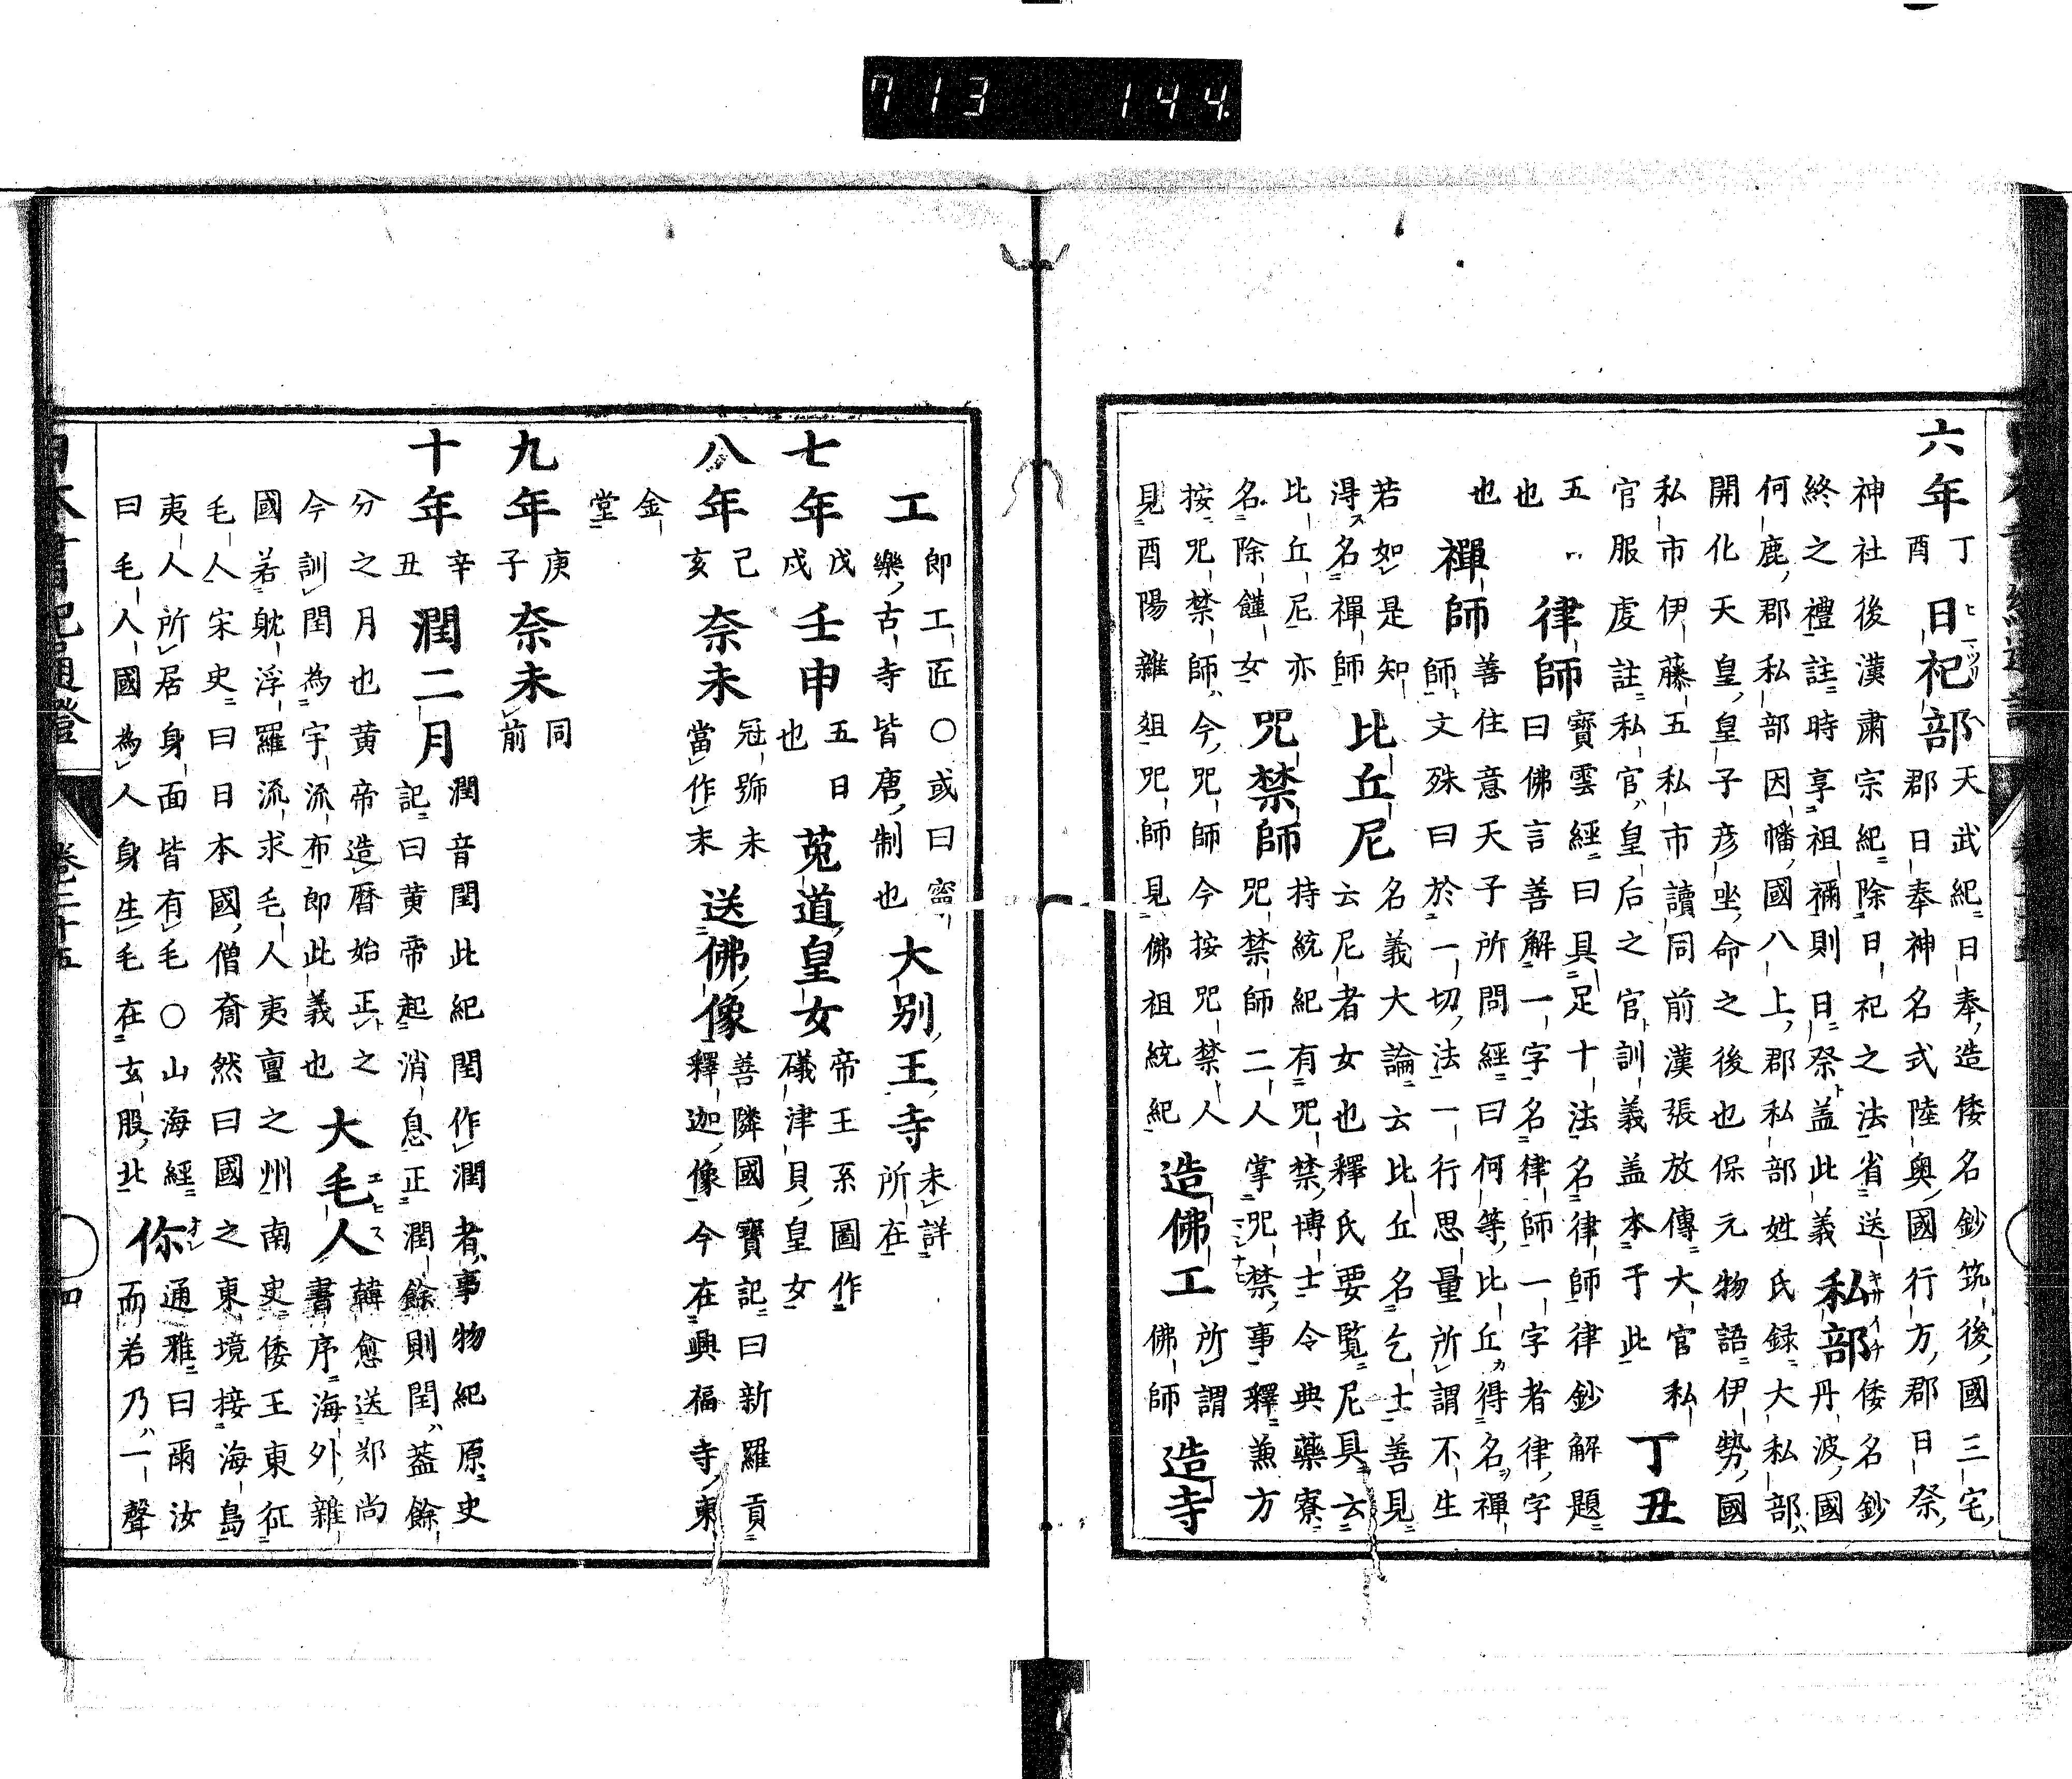 六年 丁酉 日祀部 天武紀日奉造倭名鈔筑後國三宅
郡日奉神名式陸奥國行方郡日祭
神社後漢肅宗紀除日祀之法省送
終之禮註時享祖禰則日祭盖此義 私部 倭名鈔丹波國
何鹿郡私部因幡國八上郡私部姓氏録大私部
開化天皇皇子彦坐命之後也保元物語伊勢國
私市伊藤五私市讀同前漢張放傳大官私
官服虔註私官皇后之官訓義盖本于此 丁丑
五 也 律師 寶雲經曰具足十法名律師律鈔解題
曰佛言善解一字名律師一字者律字
也 禪師 善住意天子所問經曰何等比丘得名禪
師文殊曰於一切法一行思量所謂不生
若如是知得名禪師 比丘尼 名義大論云比丘名乞士善見
云尼者女也釋氏要覧尼具云
比丘尼亦名除饉女 咒禁師 持統紀有咒禁博士令典藥寮
咒禁師二人掌咒禁事釋兼方
按咒禁師今咒師今按咒禁人
見酉陽雜俎咒師見佛祖統紀 造佛工 所謂佛師 造寺
工 即工匠〇或曰寧樂古寺皆唐制也 大別王寺 未詳所在
七年 戊戌 壬申 五日也 菟道皇女 帝王系圖作礒津貝皇女
八年 己亥 奈末 冠號未當作末 送佛像 善隣國寶記曰新羅貢
釋迦像今在興福寺東
金堂
九年 庚子 奈末 同前
十年 辛丑 潤二月 潤音閏此紀閏作潤者事物紀原史
記曰黄帝起消息正潤餘則閏蓋餘
分之月也黄帝造暦始正之
今訓閏為宇流布即此義也 大毛人 韓愈送郑尚
書序海外雜
國若躭浮羅流求毛人夷亶之州南史倭王東征
毛人宋史曰日本國僧奝然曰國之東境接海島
夷人所居身面皆有毛〇山海經
曰毛人國為人身生毛在玄股北 你 通雅曰爾汝
而若乃一聲
日本書紀通證 卷二十五 四